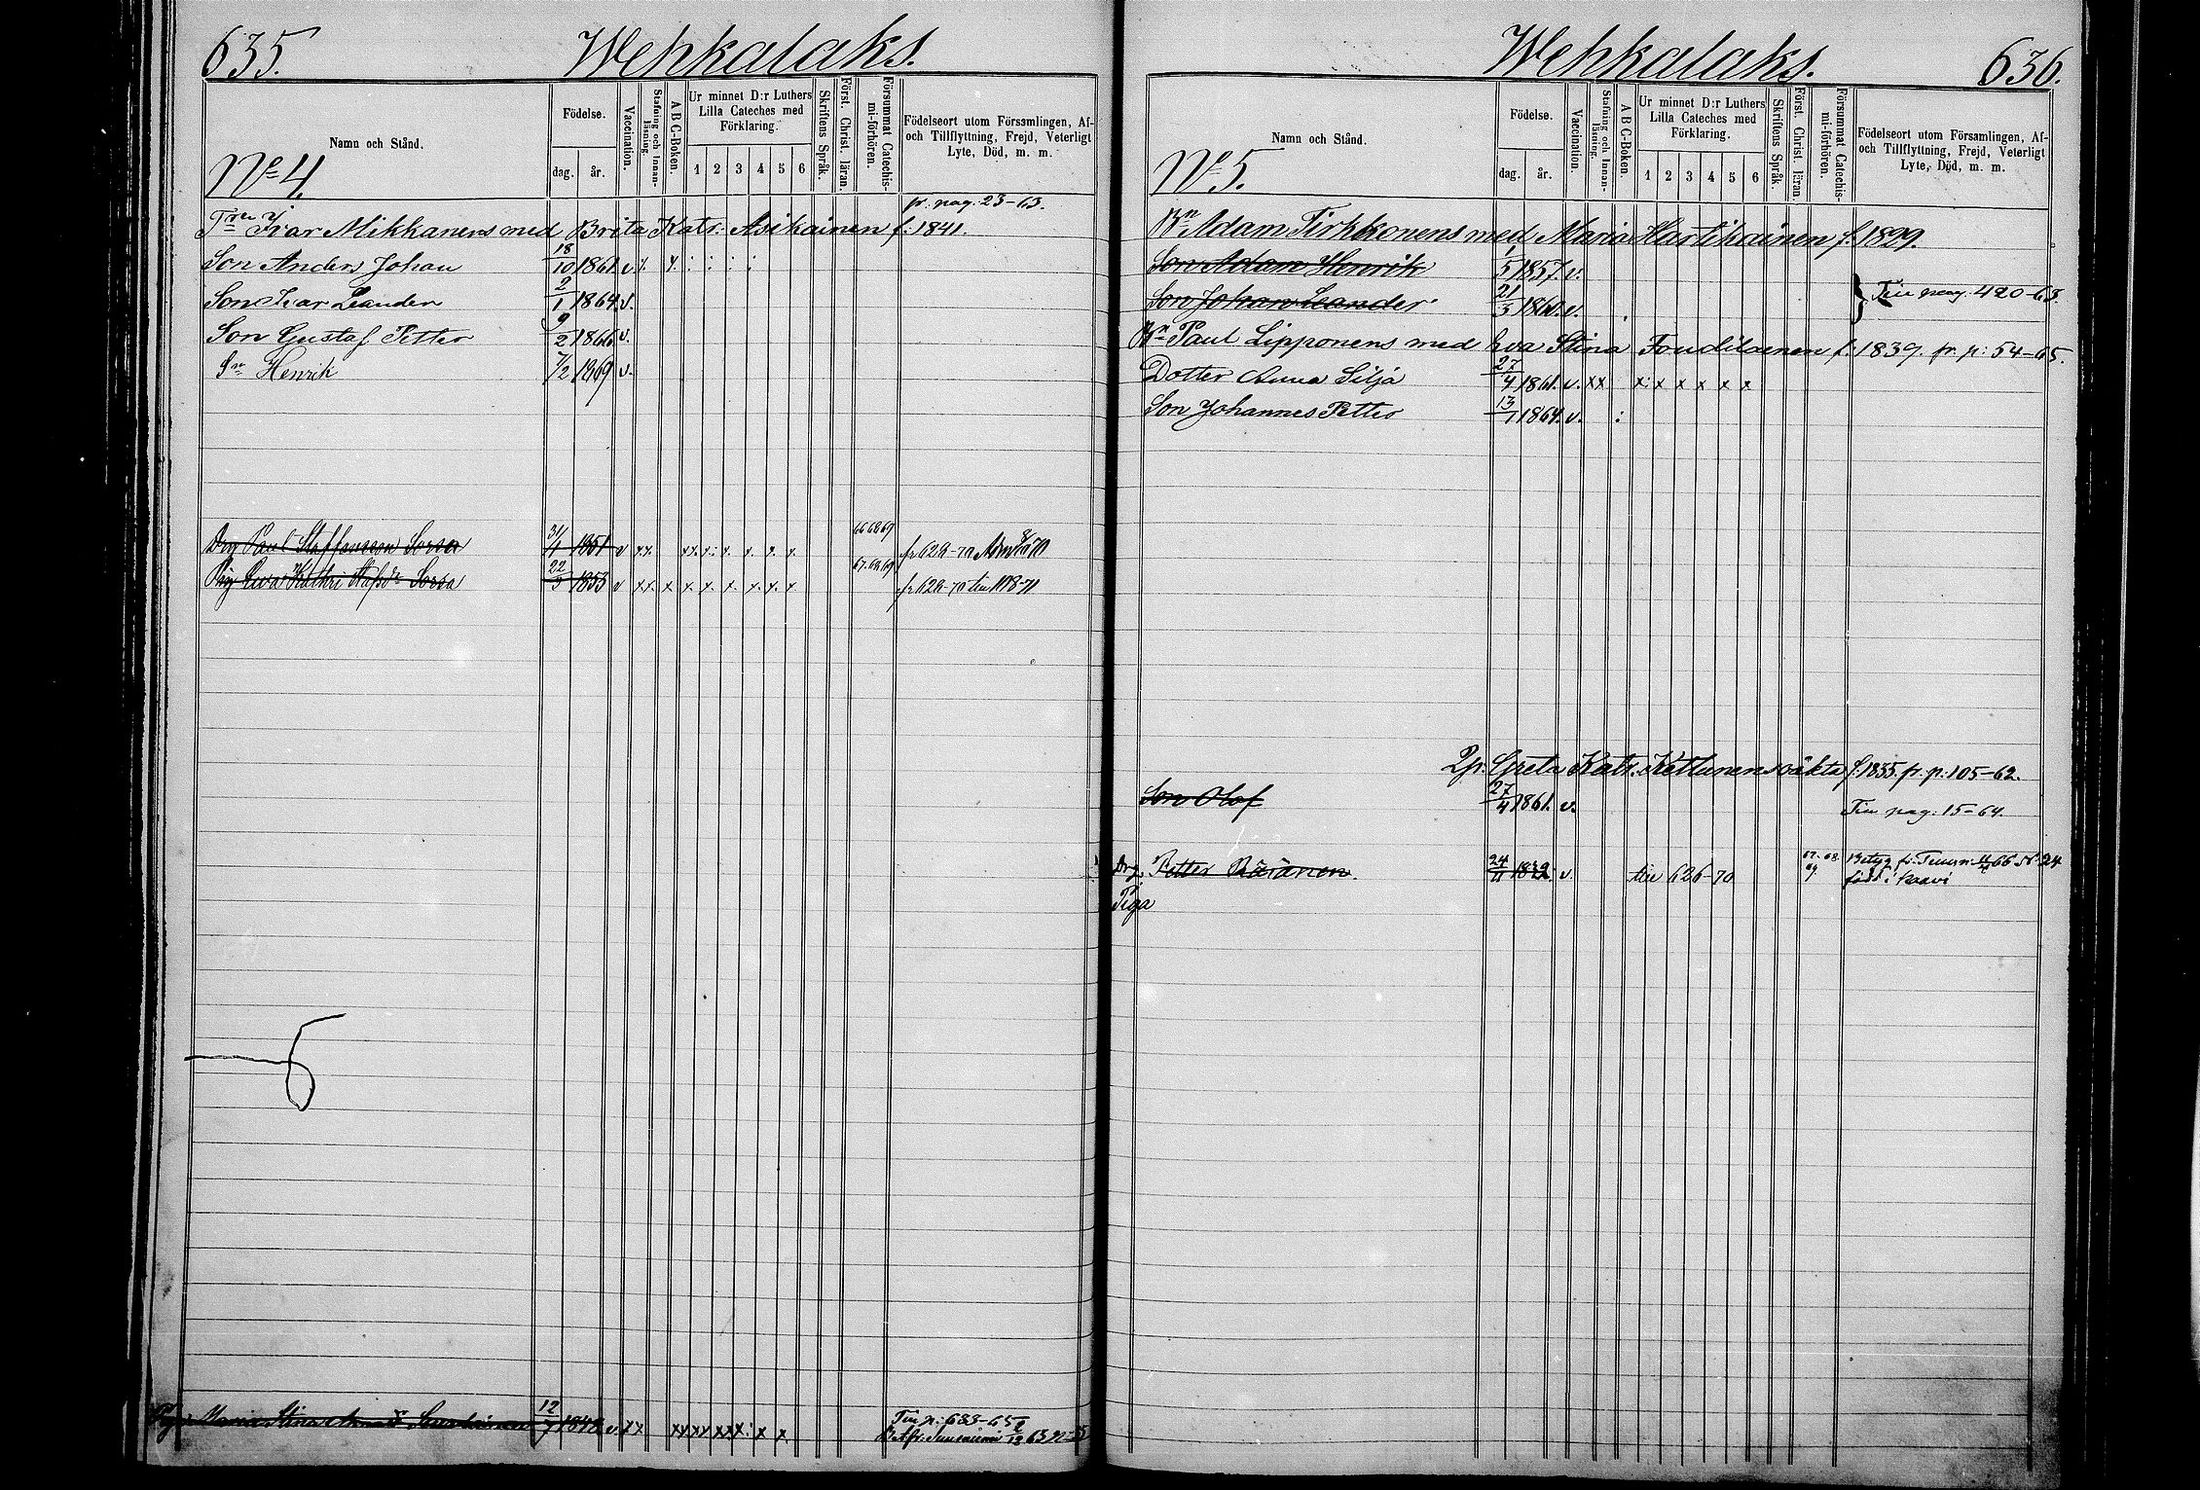 635. Wehkalaks.
Namn och Stånd.
Födelse.
dag. år.
Vaccination.
Stafning och Innanläsning.
A B C-Boken.
Ur minnet D:r Luthers Lilla Cateches med Förklaring.
1 2 3 4 5 6
Skriftens Språk.
Först. Christ. läran.
Försummat Catechismi-förhören.
Födelseort utom Församlingen, Af- och Tillflyttning, Frejd, Veterligt Lyte, Död, m. m.
No 4.
fr. pag. 23-63.
Ivar Mikkanens med Brita Katr. Asikainen f. 1841.
Son Anders Johan 18/10 1861. v.
Son Ivar Leander 2/1 1864. v.
Son Gustaf Petter 9/2 1866. v.
Sn Henrik 7/2 1869 v.
66 68 69
Drg Paul Staffansson Sorsa 31/1 1851 v fr 628-70
67. 68. 69
Pig Katri Sorsa 22/3 1853 v fr 628-70
Maria Stina 12/7 1848 v. Tin p: 633-65
Wehkalaks. 636.
Namn och Stånd.
Födelse.
dag. år.
Vaccination.
Stafning och Innanläsning.
A B C-Boken.
Ur minnet D:r Luthers Lilla Cateches med Förklaring.
1 2 3 4 5 6
Skriftens Språk.
Först. Christ. läran.
Försummat Catechismi-förhören.
Födelseort utom Församlingen, Af- och Tillflyttning, Frejd, Veterligt Lyte, Död, m. m.
No 5.
Bn Adam Tirkkonens med Maria Hartikainen f. 1829.
Son Adam Henrik 1/5 1857. v.
Son Johan Leander 21/3 1860. v. } Tin pag. 420-65.
Paul Lipponens med Eva Stina f. 1839. fr. p: 54-65.
Dotter Anna Silja 27/4 1861. v. x x x x x x x x
Son Johannes Petter 13/1 1864. v.
Greta Katr. Kettunens oäkta f. 1835. fr. p. 105-62.
Son Olof 27/4 1861. v. Tin pag. 15-64.
Drg. Petter Räsänen. 24/11 v. tin 626-70 67. 68. 69 Betyg fr.
född i Kaavi
Piga